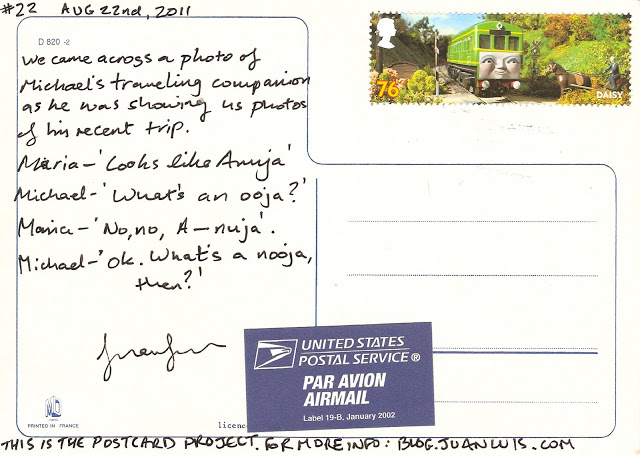 #22 AUG 22nd, 2011
D 820 -2
We came across a photo of
Michael's traveling companion
as he was showing us photos
of his recent trip.
Maria - 'Looks like Anuja'
Michael - 'What's an ooja?'
Maria - 'No, no, A-nuja'.
Michael - 'Ok. What's a nooja,
then?'
76
DAISY
UNITED STATES
POSTAL SERVICE ®
PAR AVION
AIRMAIL
Label 19-B, January 2002
PRINTED IN FRANCE
licence
THIS IS THE POSTCARD PROJECT. FOR MORE INFO: BLOG.JUANLUIS.COM